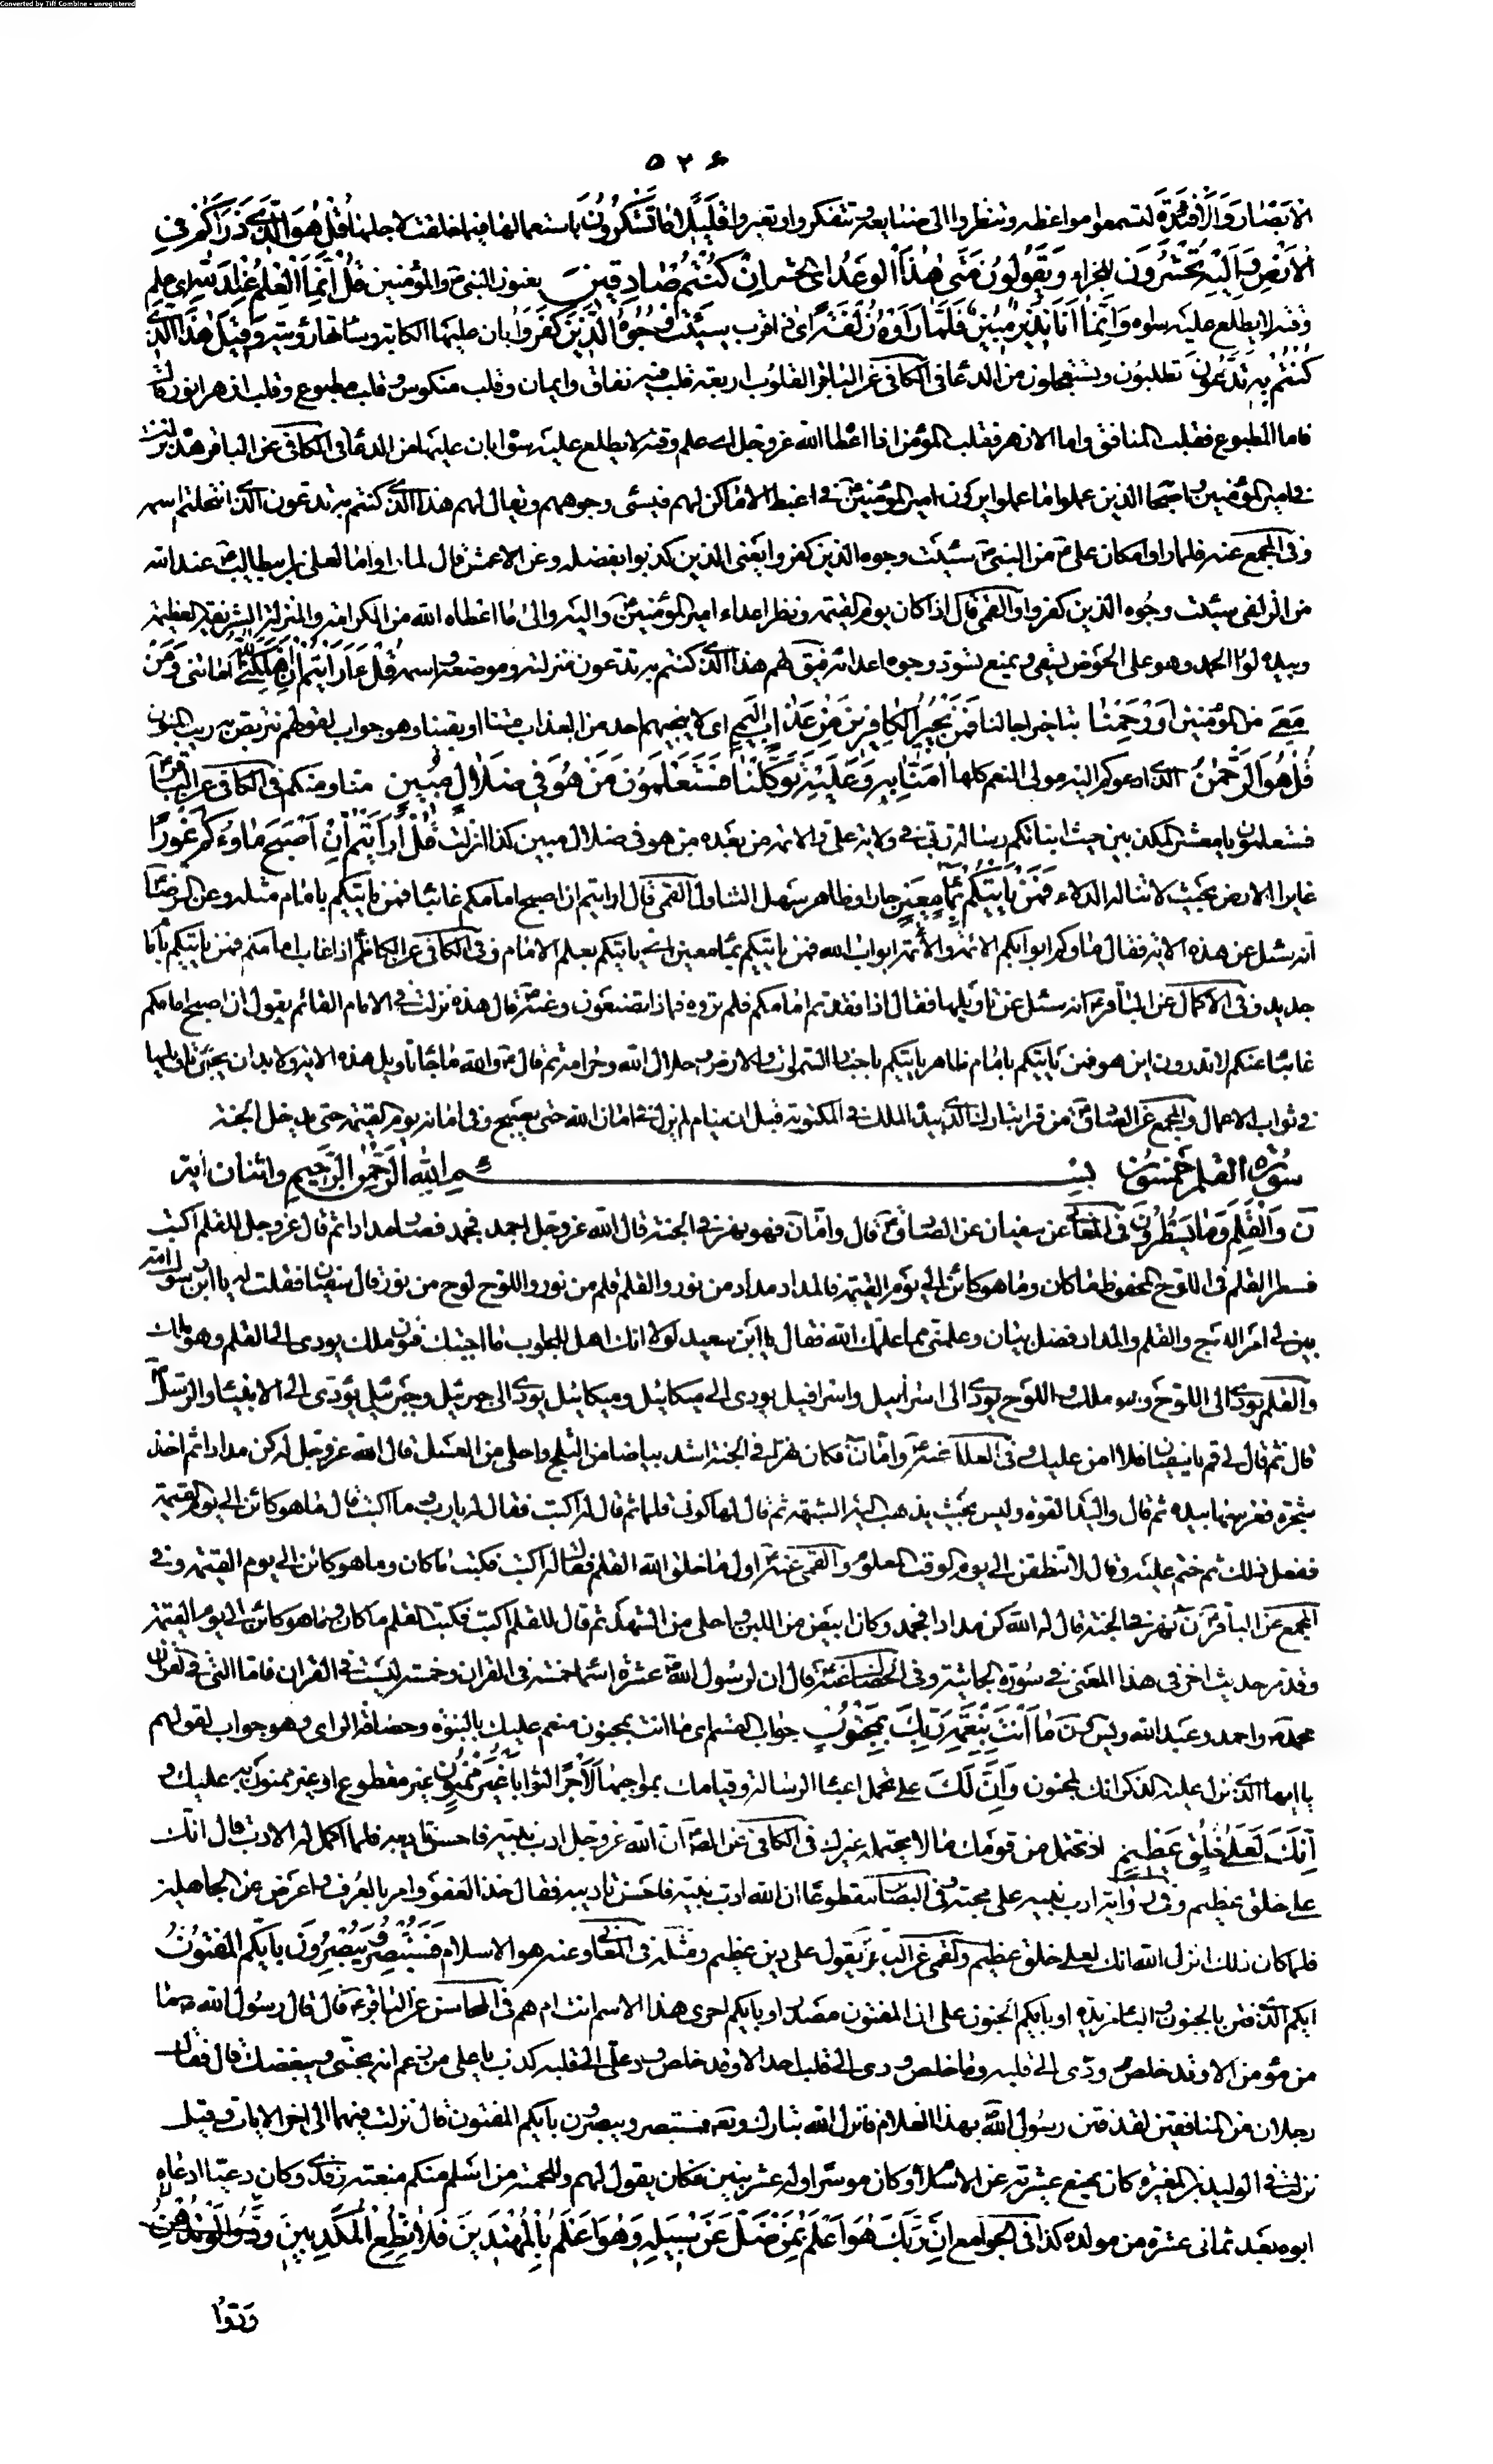 Converted by Tiff Combine - unregistered
۵۲۶
الْاَبْصٰارَ وَالْاَفْئِدَةَ لتسمعوا مواعظه وتنظروا الى صنايعه وتتفكروا وتعبروا قَلِيلًا مٰا تَشْكُرُونَ باستعمالها فيما خلقت لاجلها قُلْ هُوَ الَّذِي ذَرَاَكُمْ فِي
الْاَرْضِ وَاِلَيْهِ تُحْشَرُونَ للجزاء وَيَقُولُونَ مَتىٰ هٰذَا الْوَعْدُ اى الحشر اِنْ كُنْتُمْ صٰادِقِينَ يعنون النبى ص والمؤمنين قُلْ اِنَّمَا الْعِلْمُ عِنْدَ اللهِ اى علم
وقته لا يطلع عليه سواه وَاِنَّمٰا اَنَا نَذِيرٌ مُبِينٌ فَلَمّٰا رَاَوْهُ زُلْفَةً اى ذا قرب سِيئَتْ وُجُوهُ الَّذِينَ كَفَرُوا بان عليها الكابة وسائتها رؤيته وَقِيلَ هٰذَا الَّذِي
كُنْتُمْ بِهِ تَدَّعُونَ تطلبون وتستعجلون من الدعا فى الكافى عن الباقر القلوب اربعة قلب فيه نفاق وايمان وقلب منكوس وقلب مطبوع وقلب ازهر انور قال
فاما المطبوع فقلب المنافق واما الازهر فقلب المؤمن اذا اعطا الله عز وجل اى علم وقته لا يطلع عليه سوا بان عليها من الدعا فى الكافى عن الباقر هذه نزلت
فى امير المؤمنين واصحا الذين عملوا ما عملوا يرون امير المؤمنين فى اغبط الاماكن لهم فيسئ وجوههم ويقال لهم هذا الذى كنتم به تدعون الذى انتحلتم اسمه
وفى المجمع عنه فلما راوا مكان على من النبى سيئت وجوه الذين كفروا يعنى الذين كذبوا بفضله وعن الاعمش قال لما راوا ما لعلى بن ابيطالب عند الله
من الزلفى سيئت وجوه الذين كفروا والقمى قال اذا كان يوم القيمة ونظر اعداء امير المؤمنين واليه والى ما اعطاه الله من الكرامة والمنزلة الشريفة العظيمة
وبيده لواء الحمد وهو على الحوض يسقى ويمنع تسود وجوه اعدائه فيق لهم هذا الذى كنتم به تدعون منزلته وموضعه واسمه قُلْ اَرَاَيْتُمْ اِنْ اَهْلَكَنِيَ اللهُ اماتنى وَمَنْ
مَعِيَ من المؤمنين اَوْ رَحِمَنٰا بتاخير اجالنا فَمَنْ يُجِيرُ الْكٰافِرِينَ مِنْ عَذٰابٍ اَلِيمٍ اى لا ينجيهم احد من العذاب متنا او بقينا وهو جواب لقولهم نتربص به ريب المنون
قُلْ هُوَ الرَّحْمٰنُ الذى ادعوكم اليه مولى النعم كلها اٰمَنّٰا بِهِ وَعَلَيْهِ تَوَكَّلْنٰا فَسَتَعْلَمُونَ مَنْ هُوَ فِي ضَلٰالٍ مُبِينٍ منا ومنكم فى الكافى عن الباقر
فستعلمون يا معشر المكذبين حيث انباتكم رسالة ربى فى ولاية على والائمة من بعده من هو فى ضلال مبين كذا انزلت قُلْ اَرَاَيْتُمْ اِنْ اَصْبَحَ مٰاؤُكُمْ غَوْرًا
غايرا فى الارض بحيث لا تناله الدلاء فَمَنْ يَاْتِيكُمْ بِمٰاءٍ مَعِينٍ جار او ظاهر سهل التناول القمى قال ارايتم ان اصبح امامكم غائبا فمن ياتيكم بامام مثله وعن الرضا
انه سئل عن هذه الاية فقال ماؤكم ابوابكم الائمة والائمة ابواب الله فمن ياتيكم بماء معين اى ياتيكم بعلم الامام وفى الكافى عن الكاظم اذا غاب امامكم فمن ياتيكم بامام
جديد وفى الاكمال عن الباقر انه سئل عن تاويلها فقال اذا فقدتم امامكم فلم تروه فماذا تصنعون وعنه قال هذه نزلت فى الامام القائم يقول ان اصبح امامكم
غائبا عنكم لا تدرون اين هو فمن ياتيكم بامام ظاهر ياتيكم باخبار السموات والارض وحلال الله وحرامه ثم قال والله ما جاء تاويل هذه الاية ولا بد ان يجئ تاويلها
فى ثواب الاعمال والمجمع عن الصادق من قرا تبارك الذى بيده الملك فى المكتوبة قبل ان ينام لم يزل فى امان الله حتى يصبح وفى امانه يوم القيمة حتى يدخل الجنة
سورة القلم خمسون بسم الله الرحمن الرحيم واثنان اية
نٓ وَالْقَلَمِ وَمٰا يَسْطُرُونَ فى المعانى عن سفيان عن الصادق قال واما ن فهو نهر فى الجنة قال الله عز وجل اجمد فجمد فصار مدادا ثم قال عز وجل للقلم اكتب
فسطر القلم فى اللوح المحفوظ ما كان وما هو كائن الى يوم القيمة فالمداد مداد من نور والقلم قلم من نور واللوح لوح من نور قال سفيان فقلت له يا ابن رسول الله
بين لى امر اللوح والقلم والمداد فضل بيان وعلمنى مما علمك الله فقال يا ابن سعيد لولا انك اهل للجواب ما اجبتك فنون ملك يودى الى القلم وهو ملك
والقلم يودى الى اللوح وهو ملك واللوح يودى الى اسرافيل واسرافيل يودى الى ميكائيل وميكائيل يودى الى جبرئيل وجبرئيل يؤدى الى الانبياء والرسل
قال ثم قال لى قم يا سفيان فلا امن عليك وفى العلل عنه واما ن فكان نهرا فى الجنة اشد بياضا من الثلج واحلى من العسل قال الله عز وجل له كن مدادا ثم اخذ
شجرة فغرسها بيده ثم قال واليد القوة وليس بحيث يذهب اليه المشبهة ثم قال لها كونى قلما ثم قال له اكتب فقال له يارب وما اكتب قال ما هو كائن الى يوم القيمة
ففعل ذلك ثم ختم عليه وقال لا تنطقن الى يوم الوقت المعلوم والقمى عنه اول ما خلق الله القلم فقال له اكتب فكتب ما كان وما هو كائن الى يوم القيمة وفى
المجمع عن الباقر ن نهر فى الجنة قال له الله كن مدادا فجمد وكان ابيض من اللبن واحلى من الشهد ثم قال للقلم اكتب فكتب القلم ما كان وما هو كائن الى يوم القيمة
وقد مر حديث اخر فى هذا المعنى فى سورة الجاثية وفى الخصال عنه قال ان لرسول الله عشرة اسماء خمسة فى القران وخمسة ليست فى القران فاما التى فى القران
محمد واحمد وعبد الله ويس ون مٰا اَنْتَ بِنِعْمَةِ رَبِّكَ بِمَجْنُونٍ جواب القسم اى ما انت بمجنون منعم عليك بالنبوة وحصافة الراى وهو جواب لقولهم
يا ايها الذى نزل عليه الذكر انك لمجنون وَاِنَّ لَكَ على تحمل اعباء الرسالة وقيامك بمواجبها لَاَجْرًا لثوابا غَيْرَ مَمْنُونٍ غير مقطوع او غير ممنون به عليك وَ
اِنَّكَ لَعَلىٰ خُلُقٍ عَظِيمٍ اذ تحتمل من قومك ما لا يحتمله غيرك فى الكافى عن الصادق ان الله عز وجل ادب نبيه فاحسن تاديبه فلما اكمل له الادب قال انك
على خلق عظيم وفى رواية ادب نبيه على محبته وفى البصائر مقطوعا ان الله ادب نبيه فاحسن تاديبه فقال خذ العفو وامر بالعرف واعرض عن الجاهلين
فلما كان ذلك انزل الله انك لعلى خلق عظيم والقمى عن الباقر يقول على دين عظيم ومثله فى المعانى وعنه هو الاسلام فَسَتُبْصِرُ وَيُبْصِرُونَ بِاَيِّكُمُ الْمَفْتُونُ
ايكم الذى فتن بالجنون والباء مزيدة او بايكم الجنون على ان المفتون مصدر او بايكم احرى هذا الاسم انت ام هم فى المحاسن عن الباقر قال قال رسول الله ص ما
من مؤمن الا وقد خلص ودى الى قلبه وما خلص ودى الى قلب احد الا وقد خلص ود على الى قلبه كذب يا على من زعم انه يحبنى ويبغضك قال فقال
رجلان من المنافقين لقد فتن رسول الله بهذا الغلام فانزل الله تبارك وتع فستبصر ويبصرون بايكم المفتون قال نزلت فيهما الى اخر الايات وقيل
نزلت فى الوليد بن المغيرة كان يمنع عشيرته عن الاسلام وكان موسرا وله عشر بنين فكان يقول لهم وللحمته من اسلم منكم منعته رفدى وكان دعيا ادعاه
ابوه بعد ثمانى عشرة من مولده كذا فى الجوامع اِنَّ رَبَّكَ هُوَ اَعْلَمُ بِمَنْ ضَلَّ عَنْ سَبِيلِهِ وَهُوَ اَعْلَمُ بِالْمُهْتَدِينَ فَلٰا تُطِعِ الْمُكَذِّبِينَ وَدُّوا لَوْ تُدْهِنُ
ودوا